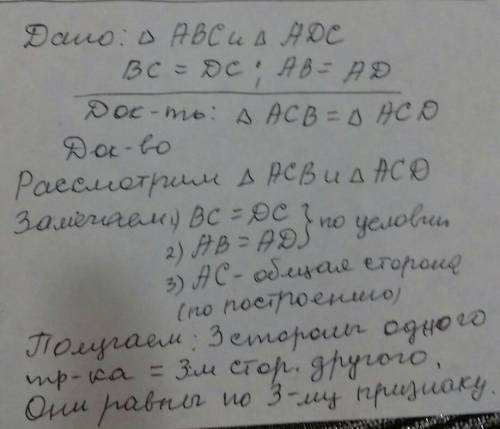 Дано: △ ABC и △ ADC
BC = DC ; AB = AD
Док-ть: △ ACB = △ ACD
Док-во
Рассмотрим △ ACB и △ ACD
Замечаем: 1) BC = DC } по условии
2) AB = AD
3) AC - общая сторона
(по построению)
Получаем: 3 стороны одного
тр-ка = 3м стор. другого.
Они равны по 3-му признаку.